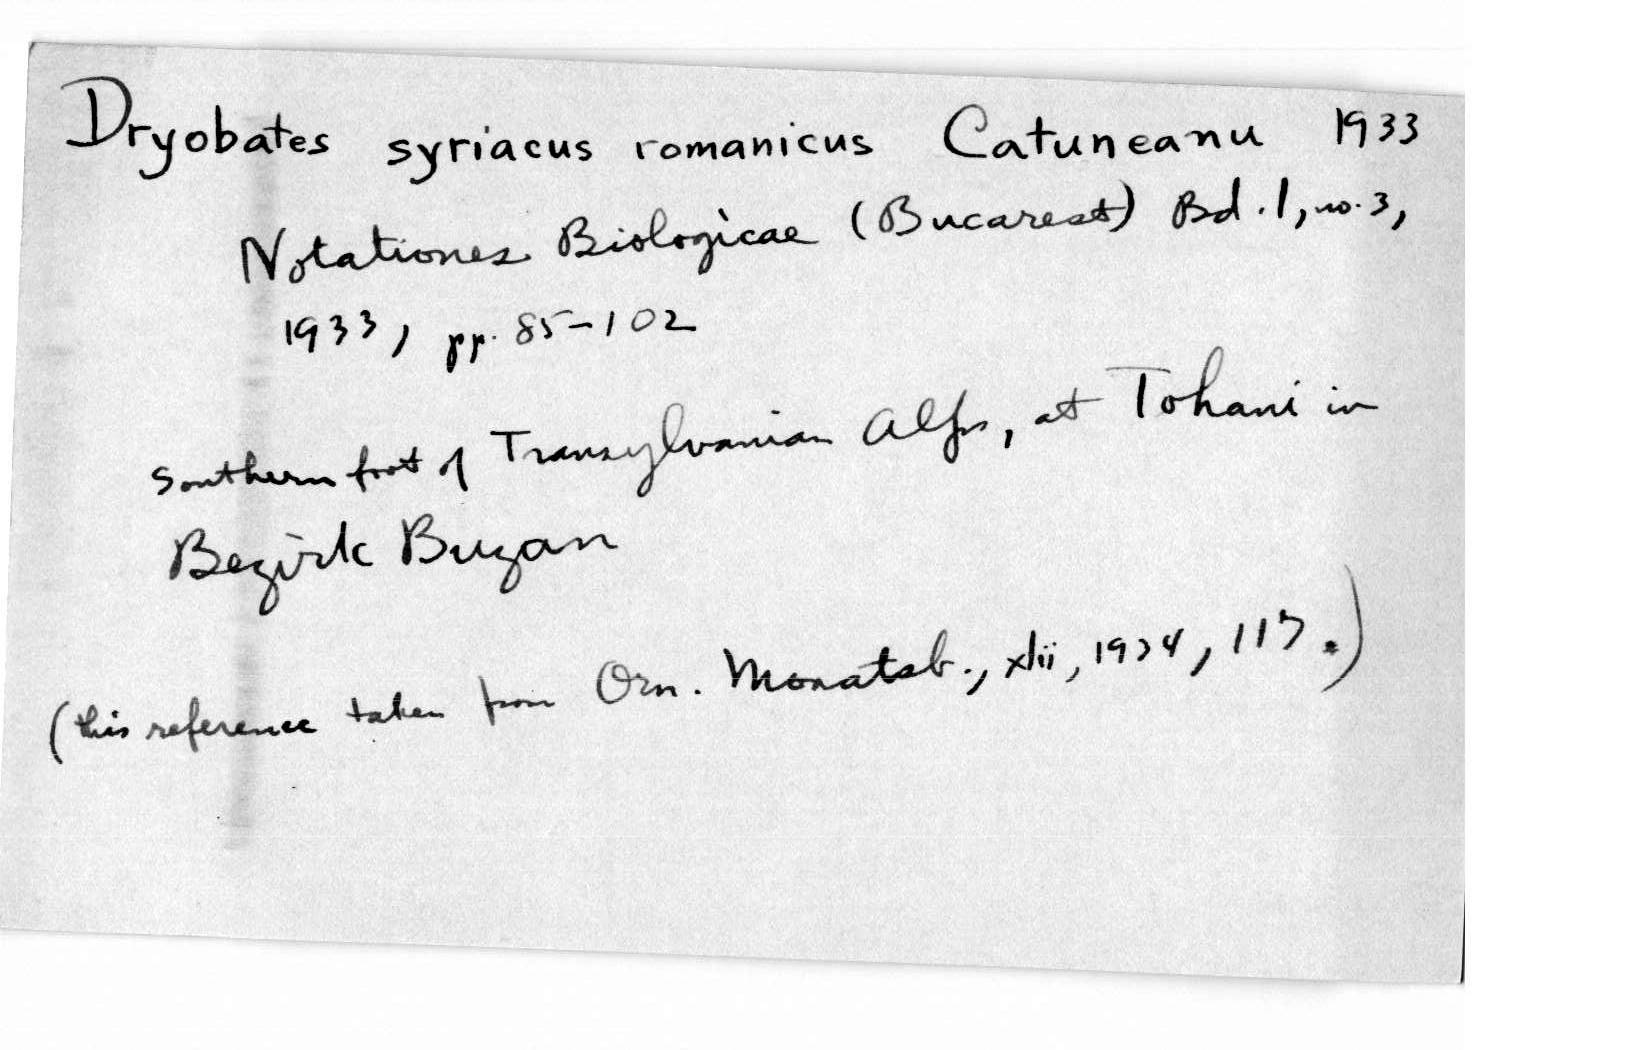 Dryobates syriacus romanicus Catuneanu 1933
Notationes Biologicae (Bucarest) Bd. 1, no. 3,
1933, pp. 85-102
Southern foot of Transylvanian Alps, at Tohani in
Bezirk Buzau
(this reference taken from Orn. Monatsb., xlii, 1934, 117.)